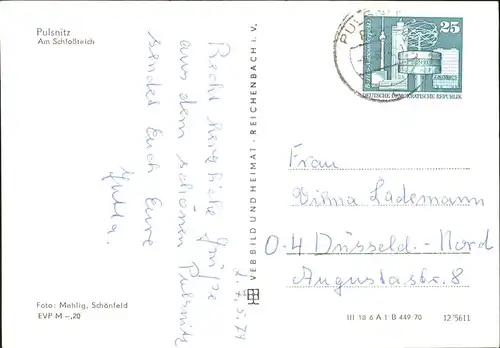 Pulsnitz
Am Schloßteich
Recht herzliche Grüße
aus dem schönen Pulsnitz
sendet Euch Eure
Jutta.
Foto: Mahlig, Schönfeld
EVP M –,20
VEB BILD UND HEIMAT · REICHENBACH i. V.
25
DEUTSCHE DEMOKRATISCHE REPUBLIK
Frau
Vilma Lademann
0-4 Düsseld.-Nord
Augustastr. 8
III 18 6 A 1 B 449 70
12/5611